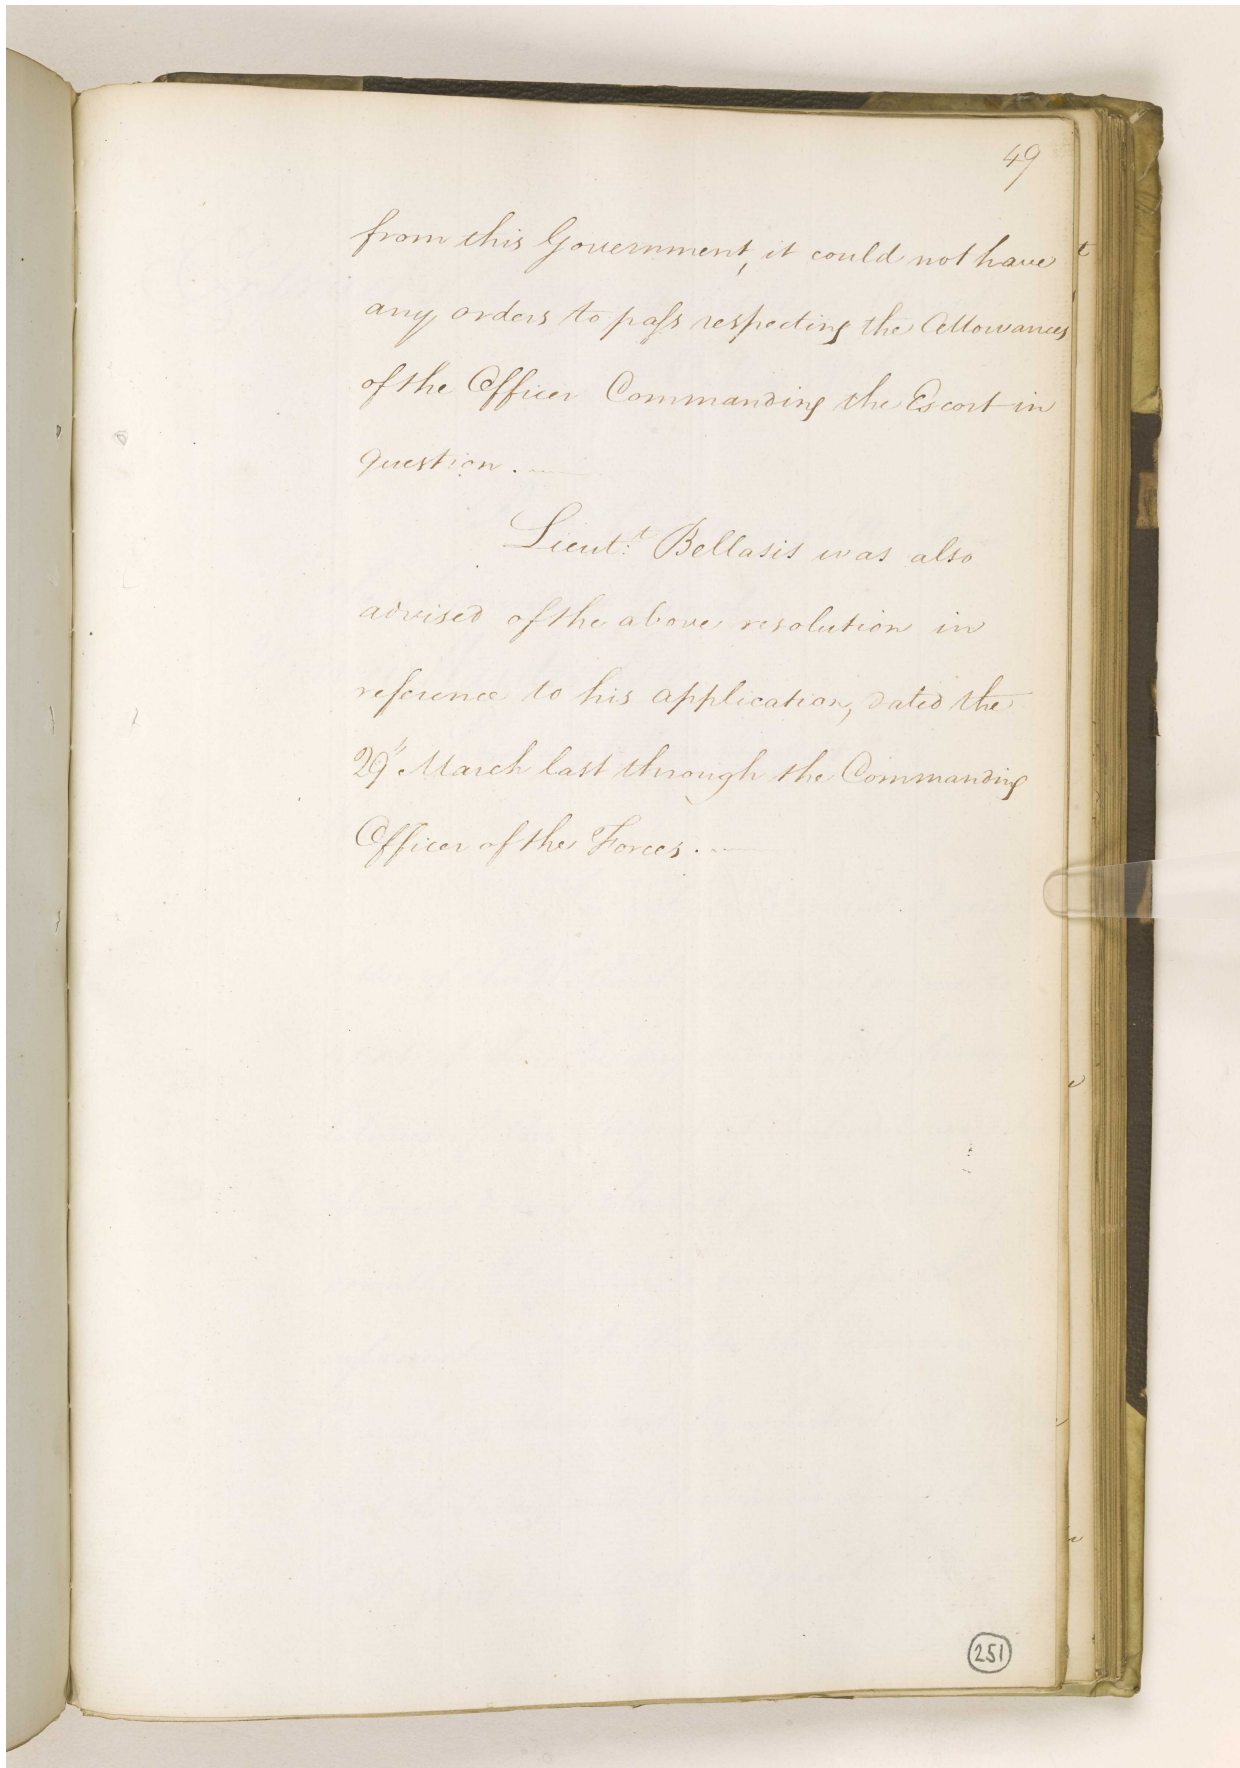 49
from this Government, it could not have
any orders to pass respecting the Allowances
of the Officer Commanding the Escort in
question. —
Lieut:t Bellasis was also
advised of the above resolution in
reference to his application, dated the
29" March last through the Commanding
Officer of the Forces. —
251